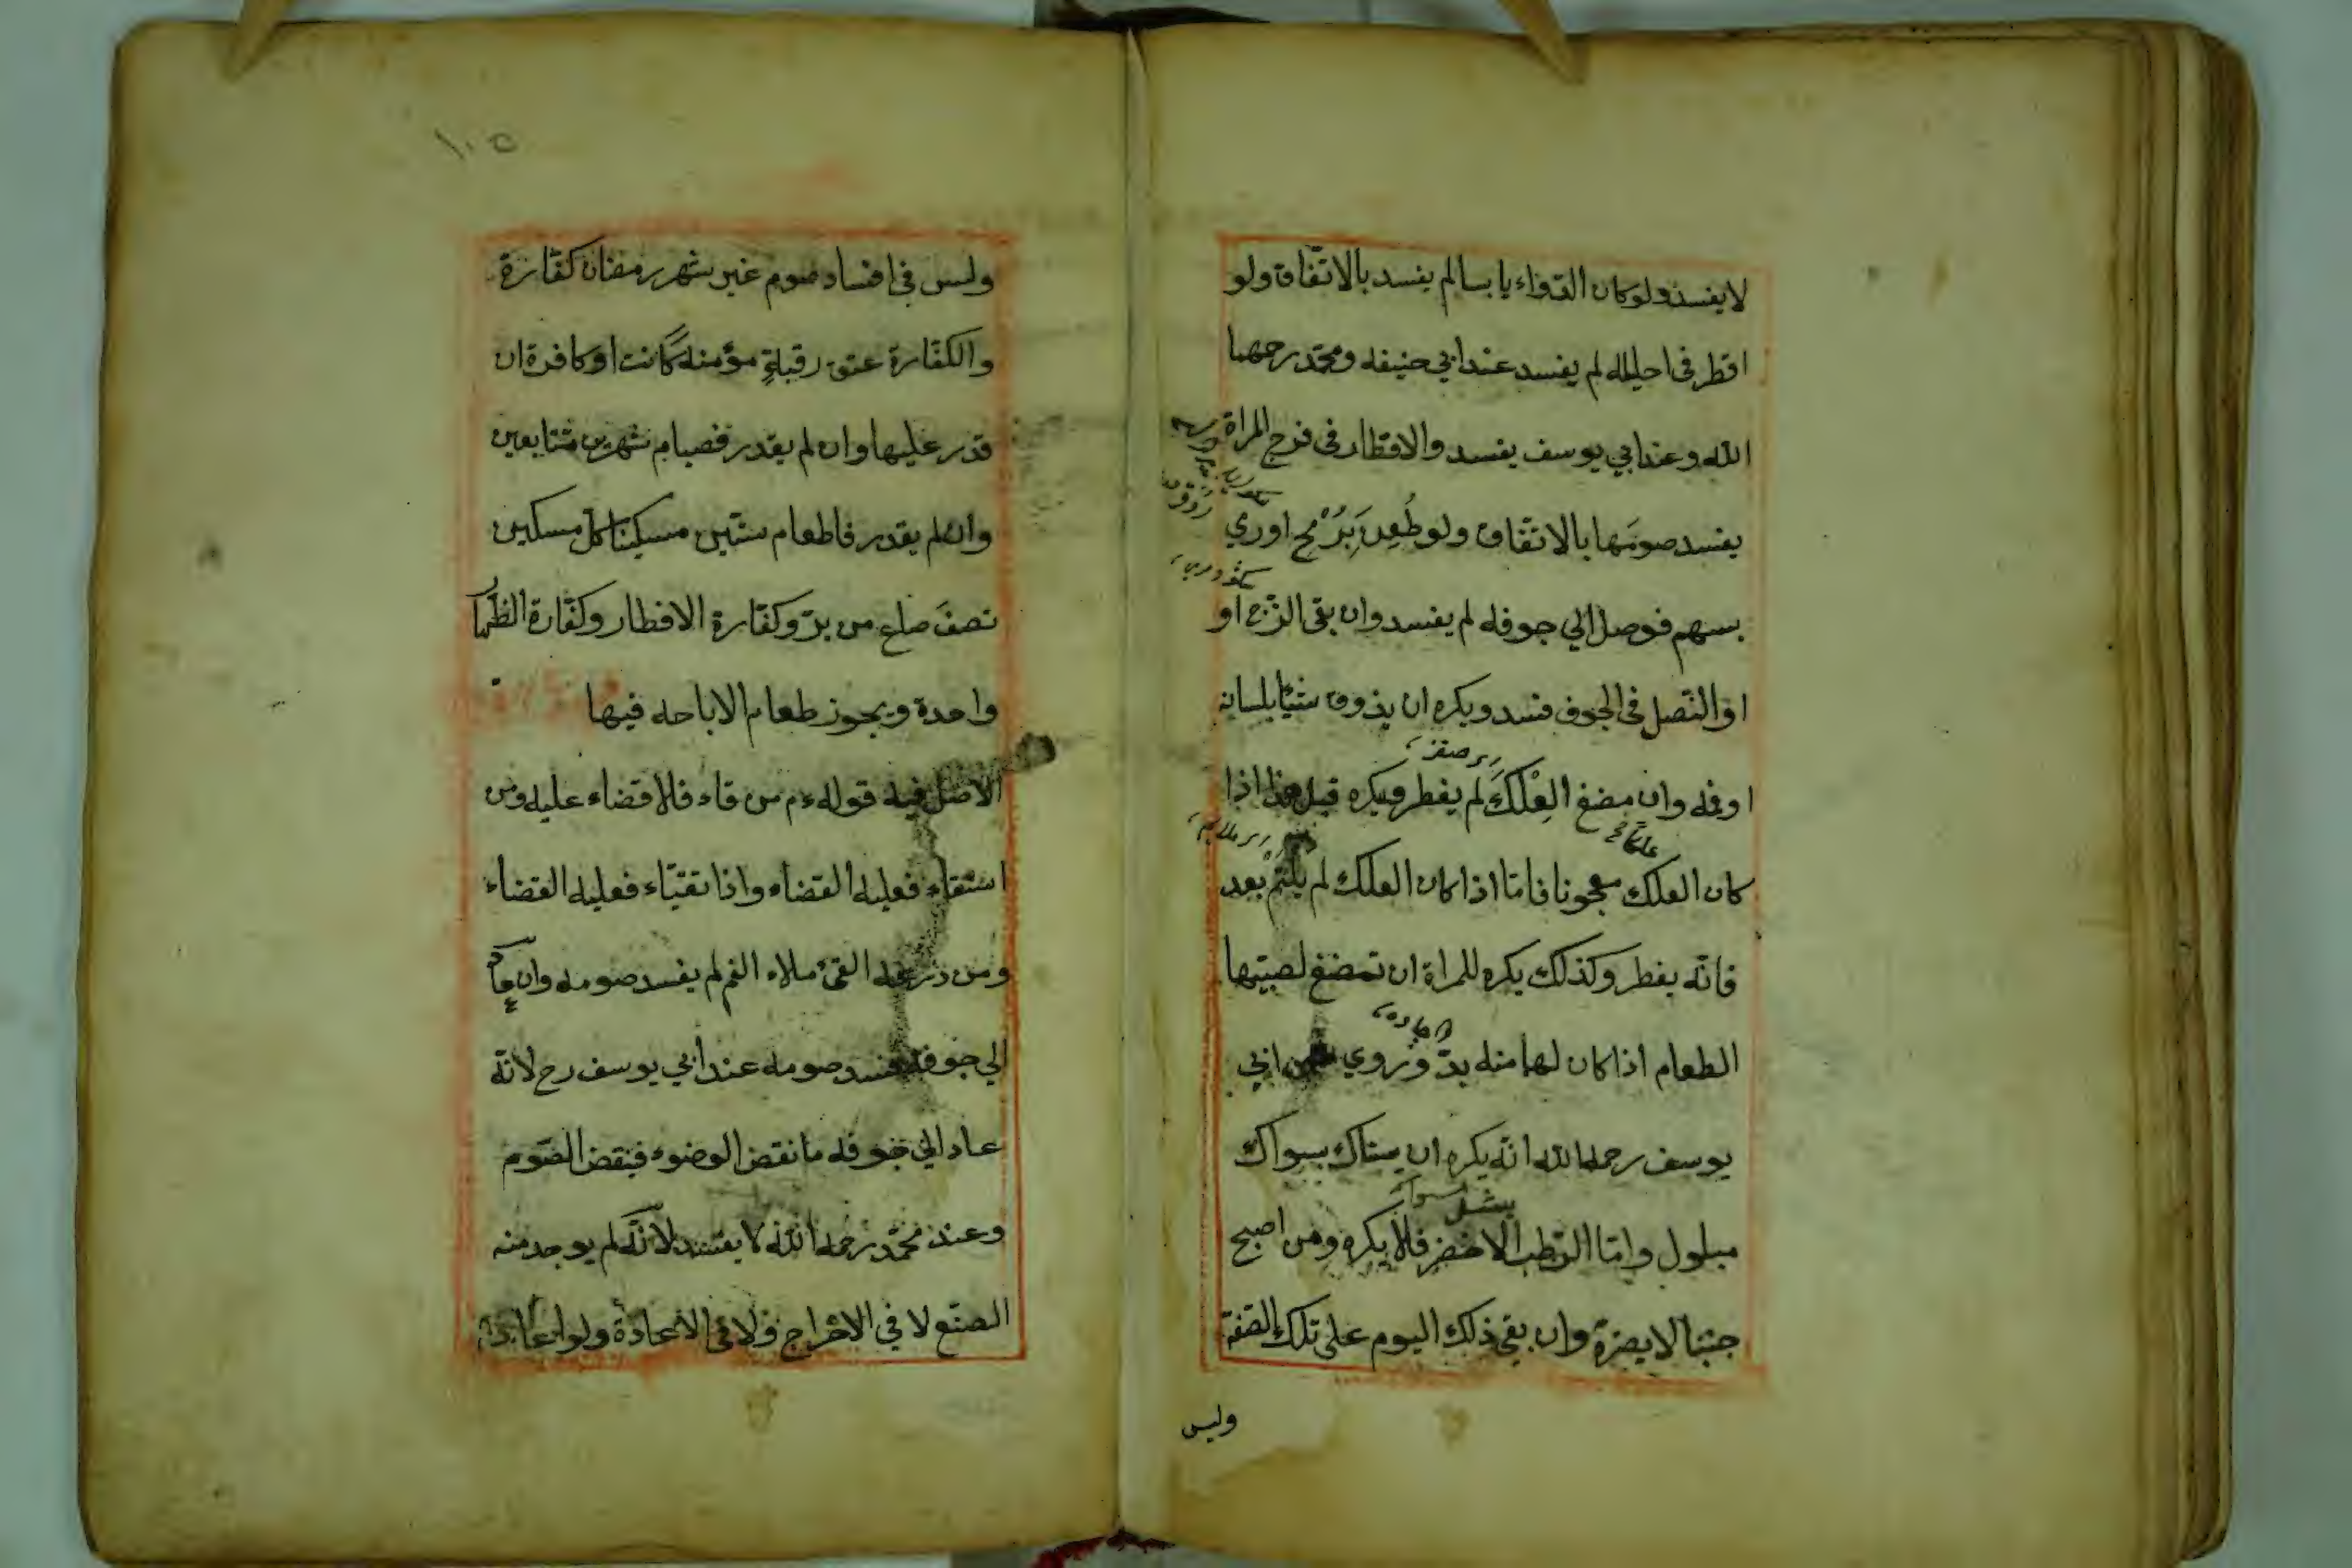 لا يفسد ولو كان الدواء يابسا لم يفسد بالاتّفاق ولو
اقطر فى احليله لم يفسد عند ابي حنيفه ومحمّد رحمهما
الله وعند ابي يوسف يفسد والاقطار فى فرج المراة
يفسد صومَها بالاتّفاق ولو طُعِنَ بَرُمْح اوري
بسهم فوصل الي جوفه لم يفسد وان بقى الزّج او
او النّصل فى الجوف فسد ويكره ان يذوق شيئا بلسانه
او فمه وان مضغ العِلْكَ لم يفطر ويكره قيل هذا اذا
كان العلك معجونا فامّا اذا كان العلك لم يلتئم بعد
فانّه يفطر وكذلك يكره للمراة ان تمضغ لصبيّها
الطعام اذا كان لها منه بدّ وروي عن ابي
يوسف رحمه الله انّه يكره ان يستاك بسواك
مبلول وامّا الرّطب الاخضر فلا يكره ومن اصبح
جنبا لا يضرّه وان بقى ذلك اليوم على تلك الصّفة
وليس
١٠٥
وليس فى افساد صوم غير شهر رمضان كفّارة
والكفّارة عتق رقبةٍ مؤمنه كانت او كافرة ان
قدر عليها وان لم يقدر فصيام شهرين متتابعين
وان لم يقدر فاطعام ستّين مسكينا كلّ مسكين
نصفَ صاع من برّ وكفّارة الافطار وكفّارة الظّها
واحدة ويجوز طعام الاباحه فيها
الاصل فيه قوله ءم من قاء فلا قضاء عليه ومن
استقاء فعليه القضاء واذا تقيّاء فعليه القضاء
ومن ذرعه القئ ملاء الفم لم يفسد صومه وان عاد
الي جوفه فسد صومه عند أبي يوسف رح لانّه
عاد الي جوفه ما نقض الوضوء فينقض الصّوم
وعند محمّد رحمه الله لا يفسد لانّه لم يوجد منه
الصّنع لا في الاخراج ولا فى الاعادة ولو اعاده